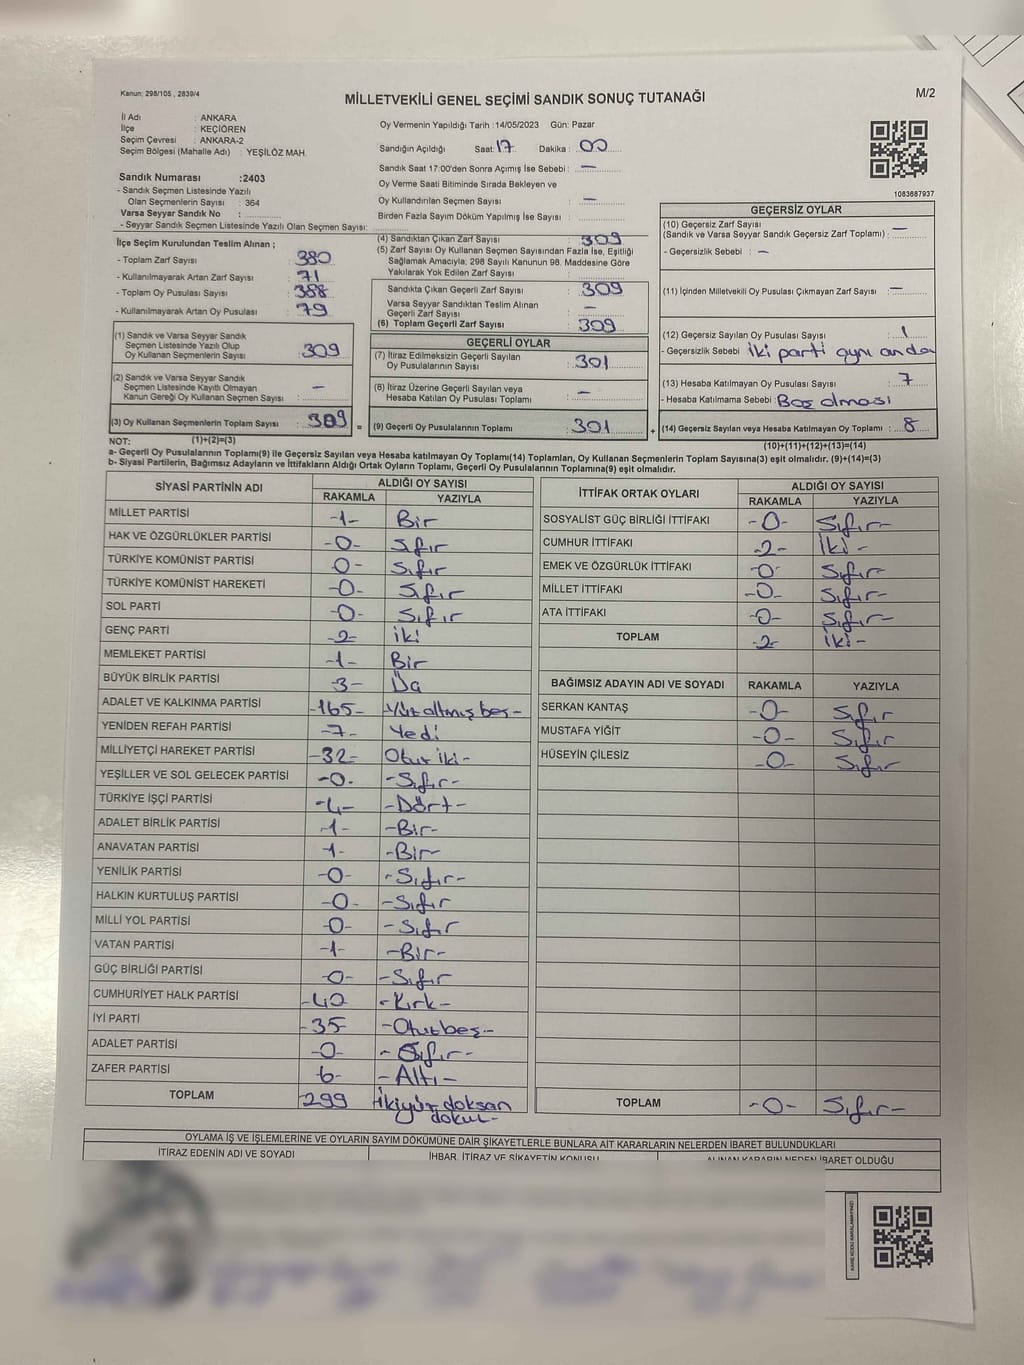 Kanun; 298/105 , 2839/4
MİLLETVEKİLİ GENEL SEÇİMİ SANDIK SONUÇ TUTANAĞI
M/2
İl Adı : ANKARA
İlçe : KEÇİÖREN
Seçim Çevresi : ANKARA-2
Seçim Bölgesi (Mahalle Adı) : YEŞİLÖZ MAH.
Sandık Numarası :2403
- Sandık Seçmen Listesinde Yazılı
Olan Seçmenlerin Sayısı : 364
Varsa Seyyar Sandık No :
- Seyyar Sandık Seçmen Listesinde Yazılı Olan Seçmen Sayısı:
Oy Vermenin Yapıldığı Tarih :14/05/2023 Gün: Pazar
Sandığın Açıldığı Saat: 17 Dakika : 00
Sandık Saat 17:00'den Sonra Açımış İse Sebebi : —
Oy Verme Saati Bitiminde Sırada Bekleyen ve
Oy Kullandırılan Seçmen Sayısı : —
Birden Fazla Sayım Döküm Yapılmış İse Sayısı :
1083687937
İlçe Seçim Kurulundan Teslim Alınan ;
- Toplam Zarf Sayısı : 380
- Kullanılmayarak Artan Zarf Sayısı : 71
- Toplam Oy Pusulası Sayısı : 388
- Kullanılmayarak Artan Oy Pusulası : 79
(1) Sandık ve Varsa Seyyar Sandık
Seçmen Listesinde Yazılı Olup
Oy Kullanan Seçmenlerin Sayısı : 309
(2) Sandık ve Varsa Seyyar Sandık
Seçmen Listesinde Kayıtlı Olmayan
Kanun Gereği Oy Kullanan Seçmen Sayısı : —
(3) Oy Kullanan Seçmenlerin Toplam Sayısı : 309
(4) Sandıktan Çıkan Zarf Sayısı : 309
(5) Zarf Sayısı Oy Kullanan Seçmen Sayısından Fazla İse, Eşitliği
Sağlamak Amacıyla; 298 Sayılı Kanunun 98. Maddesine Göre
Yakılarak Yok Edilen Zarf Sayısı :
Sandıkta Çıkan Geçerli Zarf Sayısı : 309
Varsa Seyyar Sandıktan Teslim Alınan
Geçerli Zarf Sayısı : —
(6) Toplam Geçerli Zarf Sayısı : 309
GEÇERLİ OYLAR
(7) İtiraz Edilmeksizin Geçerli Sayılan
Oy Pusulalarının Sayısı : 301
(8) İtiraz Üzerine Geçerli Sayılan veya
Hesaba Katılan Oy Pusulası Toplamı : —
= (9) Geçerli Oy Pusulalarının Toplamı : 301
GEÇERSİZ OYLAR
(10) Geçersiz Zarf Sayısı
(Sandık ve Varsa Seyyar Sandık Geçersiz Zarf Toplamı) : —
- Geçersizlik Sebebi : —
(11) İçinden Milletvekili Oy Pusulası Çıkmayan Zarf Sayısı : —
(12) Geçersiz Sayılan Oy Pusulası Sayısı : 1
- Geçersizlik Sebebi iki parti aynı anda
(13) Hesaba Katılmayan Oy Pusulası Sayısı : 7
- Hesaba Katılmama Sebebi : Boş olması
+ (14) Geçersiz Sayılan veya Hesaba Katılmayan Oy Toplamı : 8
NOT: (1)+(2)=(3)
(10)+(11)+(12)+(13)=(14)
a- Geçerli Oy Pusulalarının Toplamı(9) ile Geçersiz Sayılan veya Hesaba Katılmayan Oy Toplamı(14) Toplamları, Oy Kullanan Seçmenlerin Toplam Sayısına(3) eşit olmalıdır. (9)+(14)=(3)
b- Siyasi Partilerin, Bağımsız Adayların ve İttifakların Aldığı Ortak Oyların Toplamı, Geçerli Oy Pusulalarının Toplamına(9) eşit olmalıdır.
SİYASİ PARTİNİN ADI ALDIĞI OY SAYISI
RAKAMLA YAZIYLA
MİLLET PARTİSİ -1- Bir
HAK VE ÖZGÜRLÜKLER PARTİSİ -0- Sıfır
TÜRKİYE KOMÜNİST PARTİSİ 0- Sıfır
TÜRKİYE KOMÜNİST HAREKETİ -0- Sıfır
SOL PARTİ -0- Sıfır
GENÇ PARTİ -2- iki
MEMLEKET PARTİSİ -1- Bir
BÜYÜK BİRLİK PARTİSİ -3- Üç
ADALET VE KALKINMA PARTİSİ -165- Yüzaltmışbeş-
YENİDEN REFAH PARTİSİ -7- Yedi
MİLLİYETÇİ HAREKET PARTİSİ -32- Otuziki-
YEŞİLLER VE SOL GELECEK PARTİSİ -0- -Sıfır-
TÜRKİYE İŞÇİ PARTİSİ -4- -Dört-
ADALET BİRLİK PARTİSİ -1- -Bir-
ANAVATAN PARTİSİ -1- -Bir-
YENİLİK PARTİSİ -0- -Sıfır-
HALKIN KURTULUŞ PARTİSİ -0- -Sıfır
MİLLİ YOL PARTİSİ -0- -Sıfır
VATAN PARTİSİ -1- -Bir-
GÜÇ BİRLİĞİ PARTİSİ -0- -Sıfır
CUMHURİYET HALK PARTİSİ -40 -Kırk-
İYİ PARTİ -35- -Otuzbeş-
ADALET PARTİSİ -0- -Sıfır-
ZAFER PARTİSİ 6- -Altı-
TOPLAM 299 İkiyüzdoksan
dokuz-
İTTİFAK ORTAK OYLARI ALDIĞI OY SAYISI
RAKAMLA YAZIYLA
SOSYALİST GÜÇ BİRLİĞİ İTTİFAKI -0- Sıfır-
CUMHUR İTTİFAKI -2- İki-
EMEK VE ÖZGÜRLÜK İTTİFAKI -0- Sıfır
MİLLET İTTİFAKI -0- Sıfır-
ATA İTTİFAKI -0- Sıfır-
TOPLAM -2- İki-
BAĞIMSIZ ADAYIN ADI VE SOYADI RAKAMLA YAZIYLA
SERKAN KANTAŞ -0- Sıfır
MUSTAFA YİĞİT -0- Sıfır
HÜSEYİN ÇİLESİZ -0- Sıfır
TOPLAM -0- Sıfır-
OYLAMA İŞ VE İŞLEMLERİNE VE OYLARIN SAYIM DÖKÜMÜNE DAİR ŞİKAYETLERLE BUNLARA AİT KARARLARIN NELERDEN İBARET BULUNDUKLARI
İTİRAZ EDENİN ADI VE SOYADI İHBAR, İTİRAZ VE ŞİKAYETİN KONUSU ALINAN KARARIN NEDEN İBARET OLDUĞU
KARE KODU KARALAMAYINIZ!